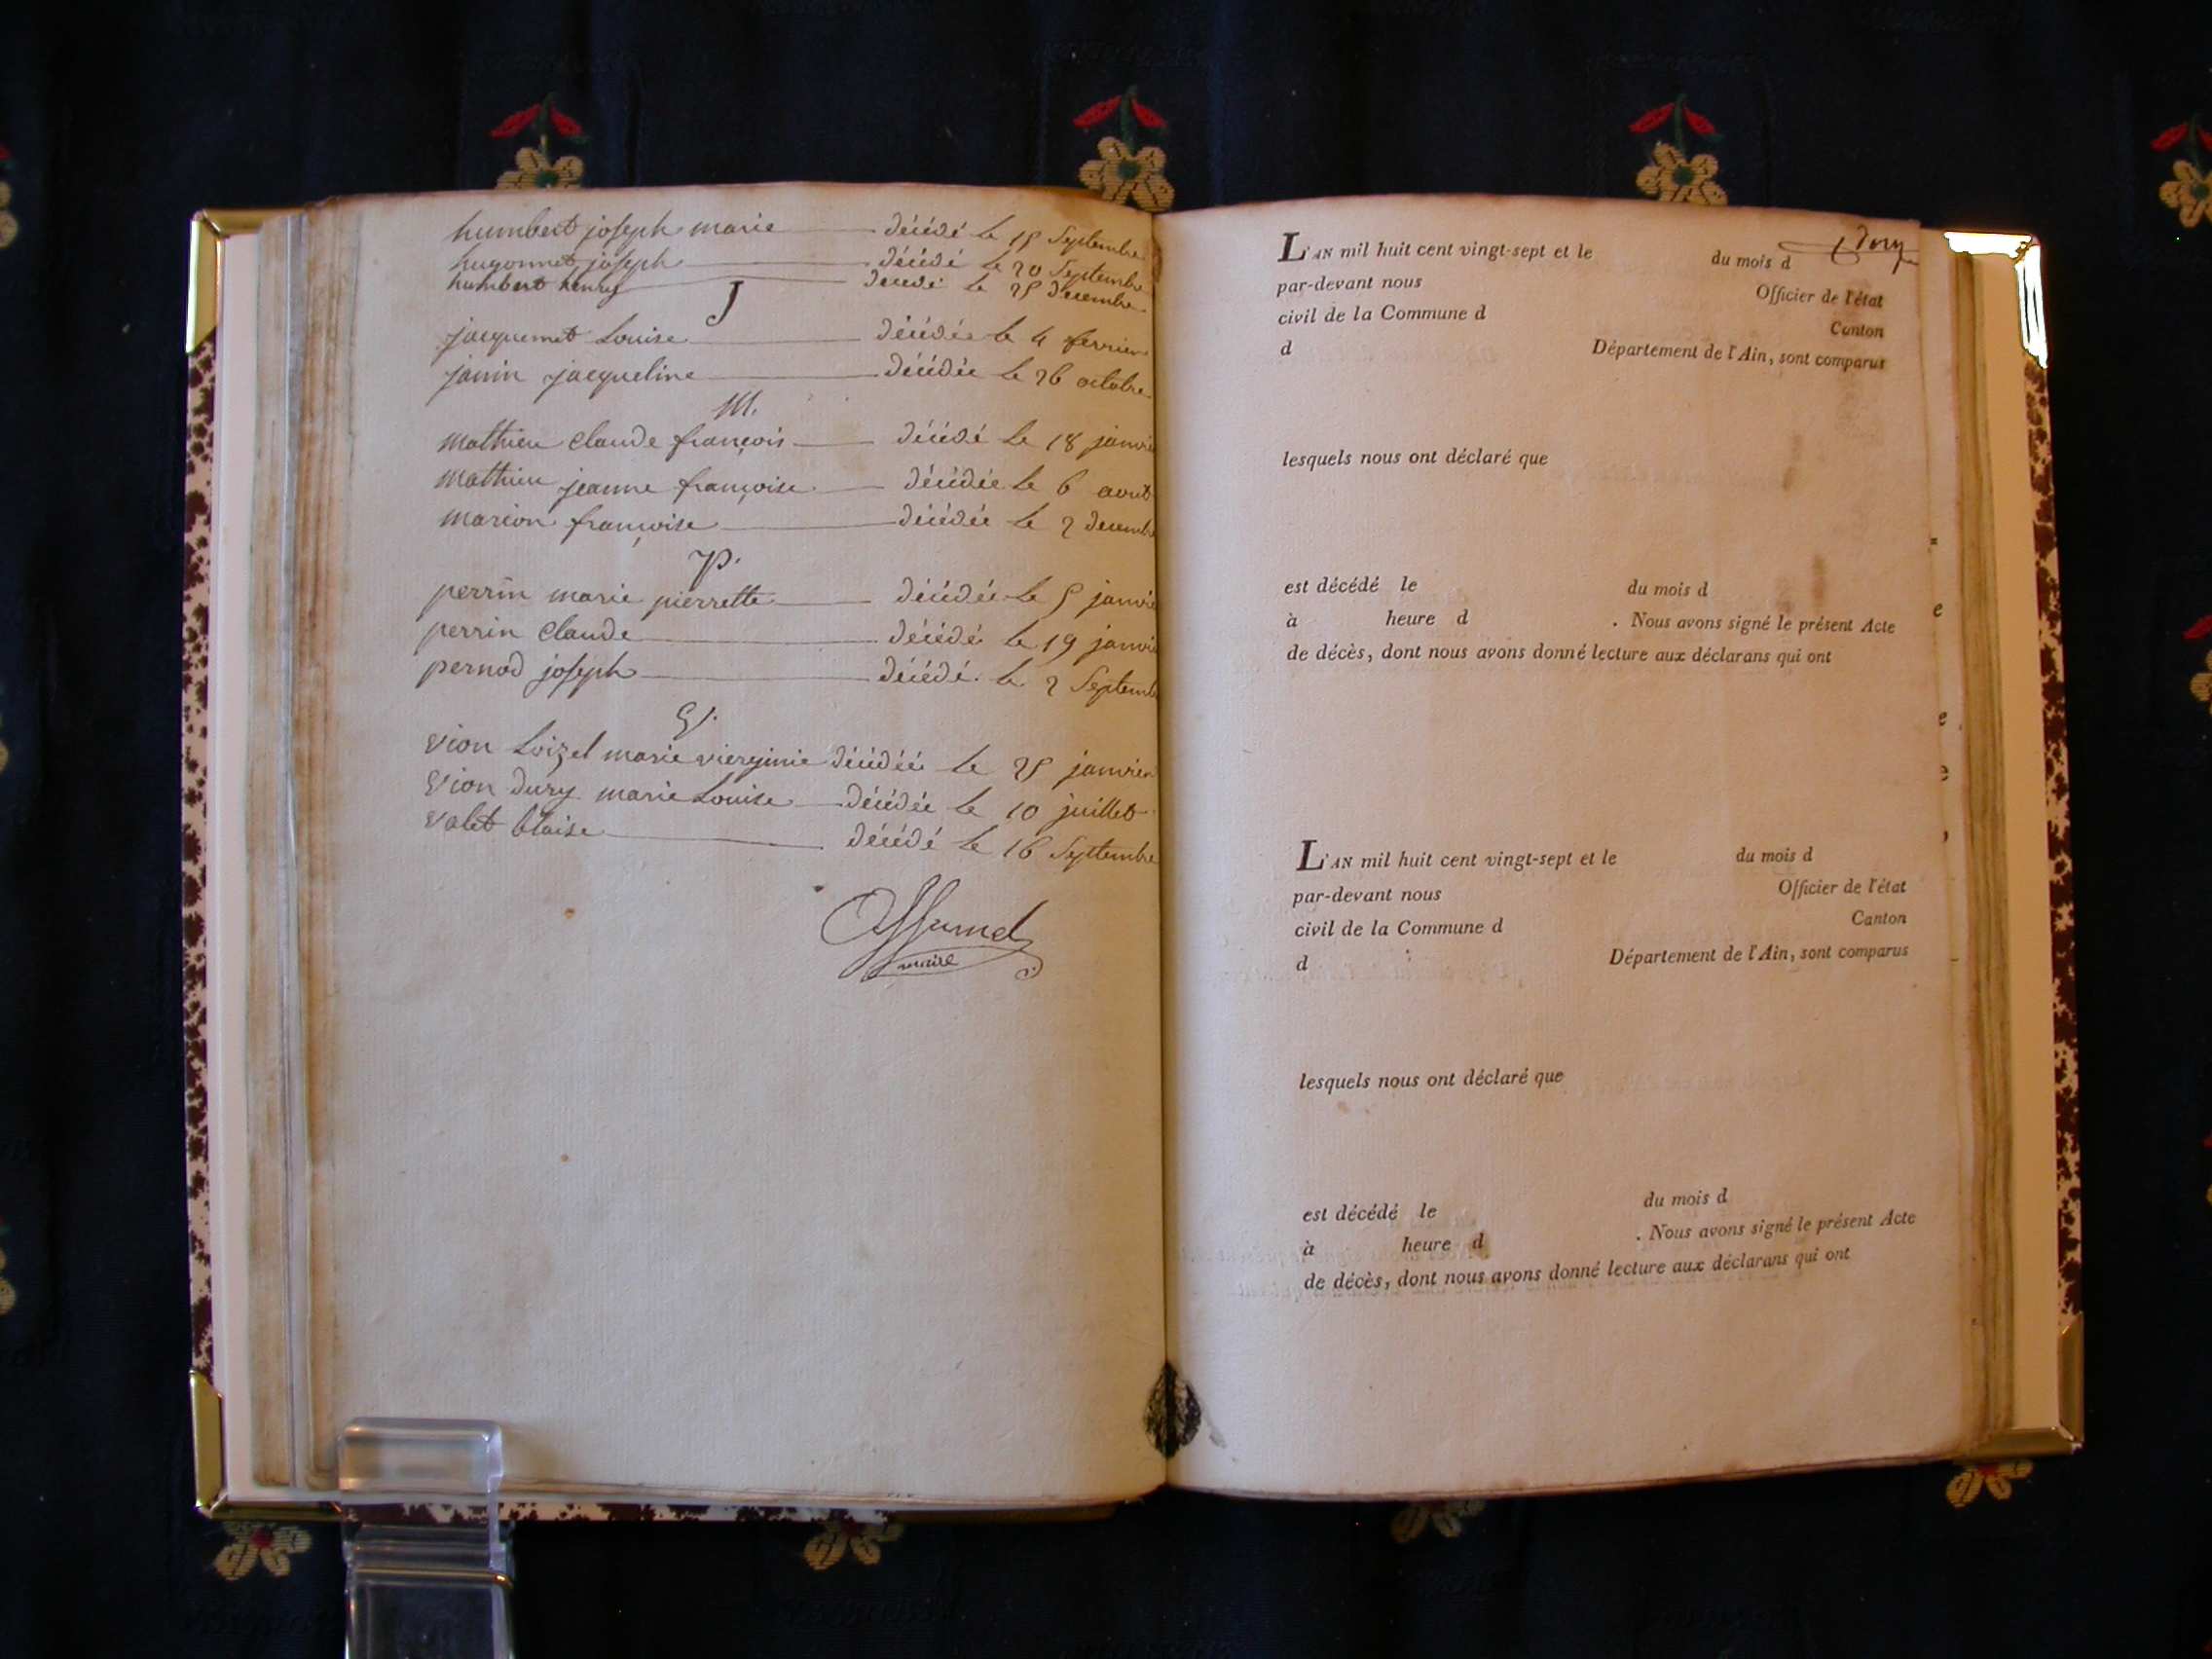 humbert joseph marie décédé le 15 Septembre
hugonnet joseph décédé le 20 Septembre
humbert henry décédé le 25 decembre
J
jacquemet Louise décédée le 4 fevrier
janin jacqueline décédée le 26 octobre
M.
Mathieu claude françois décédé le 18 janvi
Mathieu jeanne françoise décédée le 6 aout
Marion françoise décédée le 2 decembre
P.
perrin marie pierrette décédée le 5 janvie
perrin claude décédé le 19 janvi
pernod joseph décédé le 2 Septemb
V.
Vion Loizel marie vierginie décédée le 25 janvier
Vion Dury marie Louise décédée le 10 juillet
Valet blaise décédé le 16 Septembre
maire
L'AN mil huit cent vingt-sept et le du mois d
par-devant nous Officier de l'état
civil de la Commune d Canton
d Département de l'Ain, sont comparus
lesquels nous ont déclaré que
est décédé le du mois d
à heure d . Nous avons signé le présent Acte
de décès, dont nous avons donné lecture aux déclarans qui ont
L'AN mil huit cent vingt-sept et le du mois d
par-devant nous Officier de l'état
civil de la Commune d Canton
d Département de l'Ain, sont comparus
lesquels nous ont déclaré que
est décédé le du mois d
à heure d . Nous avons signé le présent Acte
de décès, dont nous avons donné lecture aux déclarans qui ont